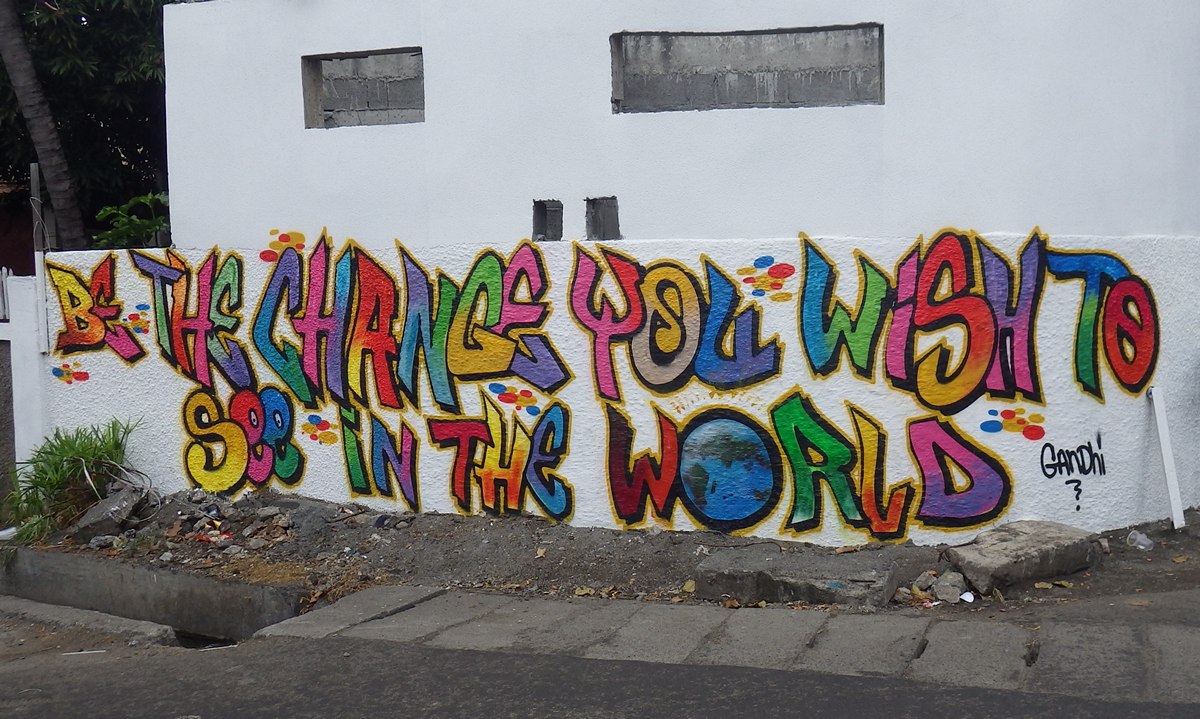 BE THE CHANGE YOU WiSH TO
See iN THE WORLD
GANDhi
?